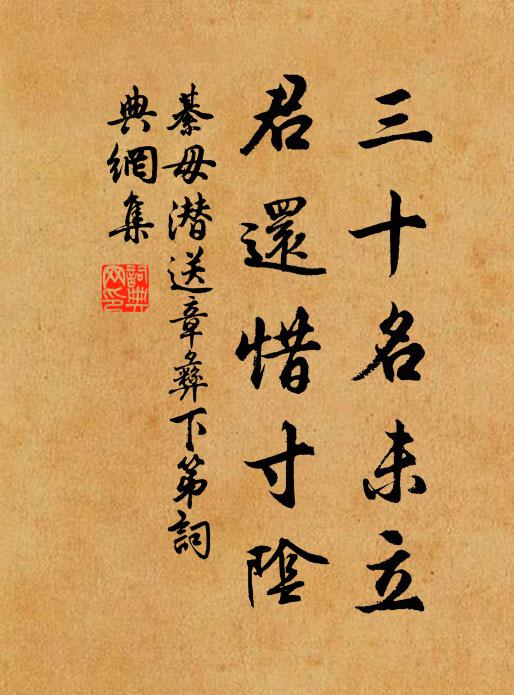 三十名未立
君還惜寸陰
綦毋潛送章彝下第詞
典網集
詞典網印